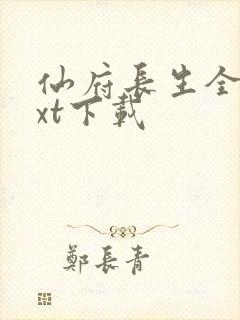 仙府長生全
xt下載
鄭長青